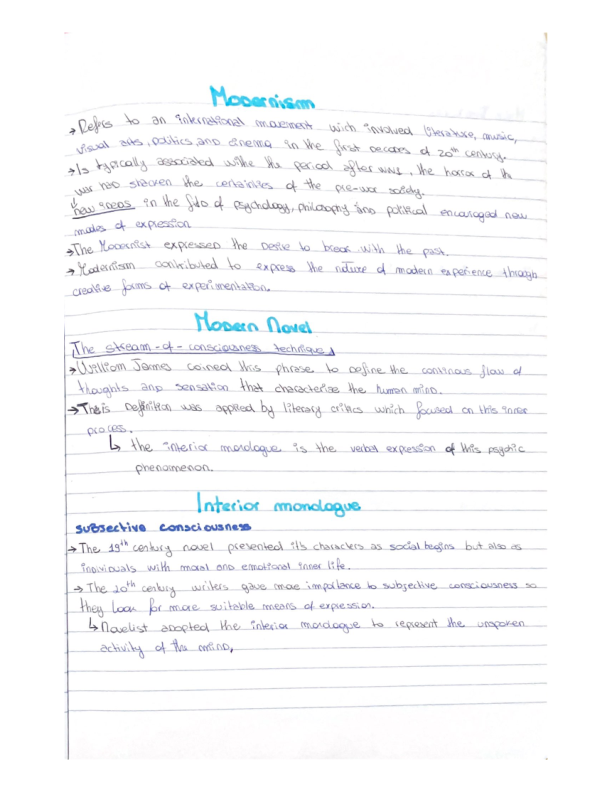 Modernism
→ Refers to an international movement wich involved literature, music,
visual arts, politics, and cinema in the first decades of 20th century.
→ Is typically associated withe the period after war, the horror of th
war had shacken the certainties of the pre-war society.
new ideas in the fild of psychology, philosophy and political encouraged new
modes of expression
→ The Modernist expressed the desire to break with the past.
→ Modernism contributed to express the nature of modern experience through
creative forms of experimentation.
Modern Novel
The stream-of-consciousness technique
→ William James coined this phrase to define the continous flow of
thoughts and sensation that characterise the human mind.
→ This definition was applied by literary critics which focused on this inner
process.
↳ the interior monologue is the verbal expression of this psychic
phenomenon.
Interior monologue
subsective consciousness
→ The 19th century novel presented its characters as social begins but also as
individuals with moral and emotional inner life.
→ The 20th century writers gave more importance to subjective consciousness so
they look for more suitable means of expression.
↳ Novelist adopted the interior monologue to represent the unspoken
activity of the mind,